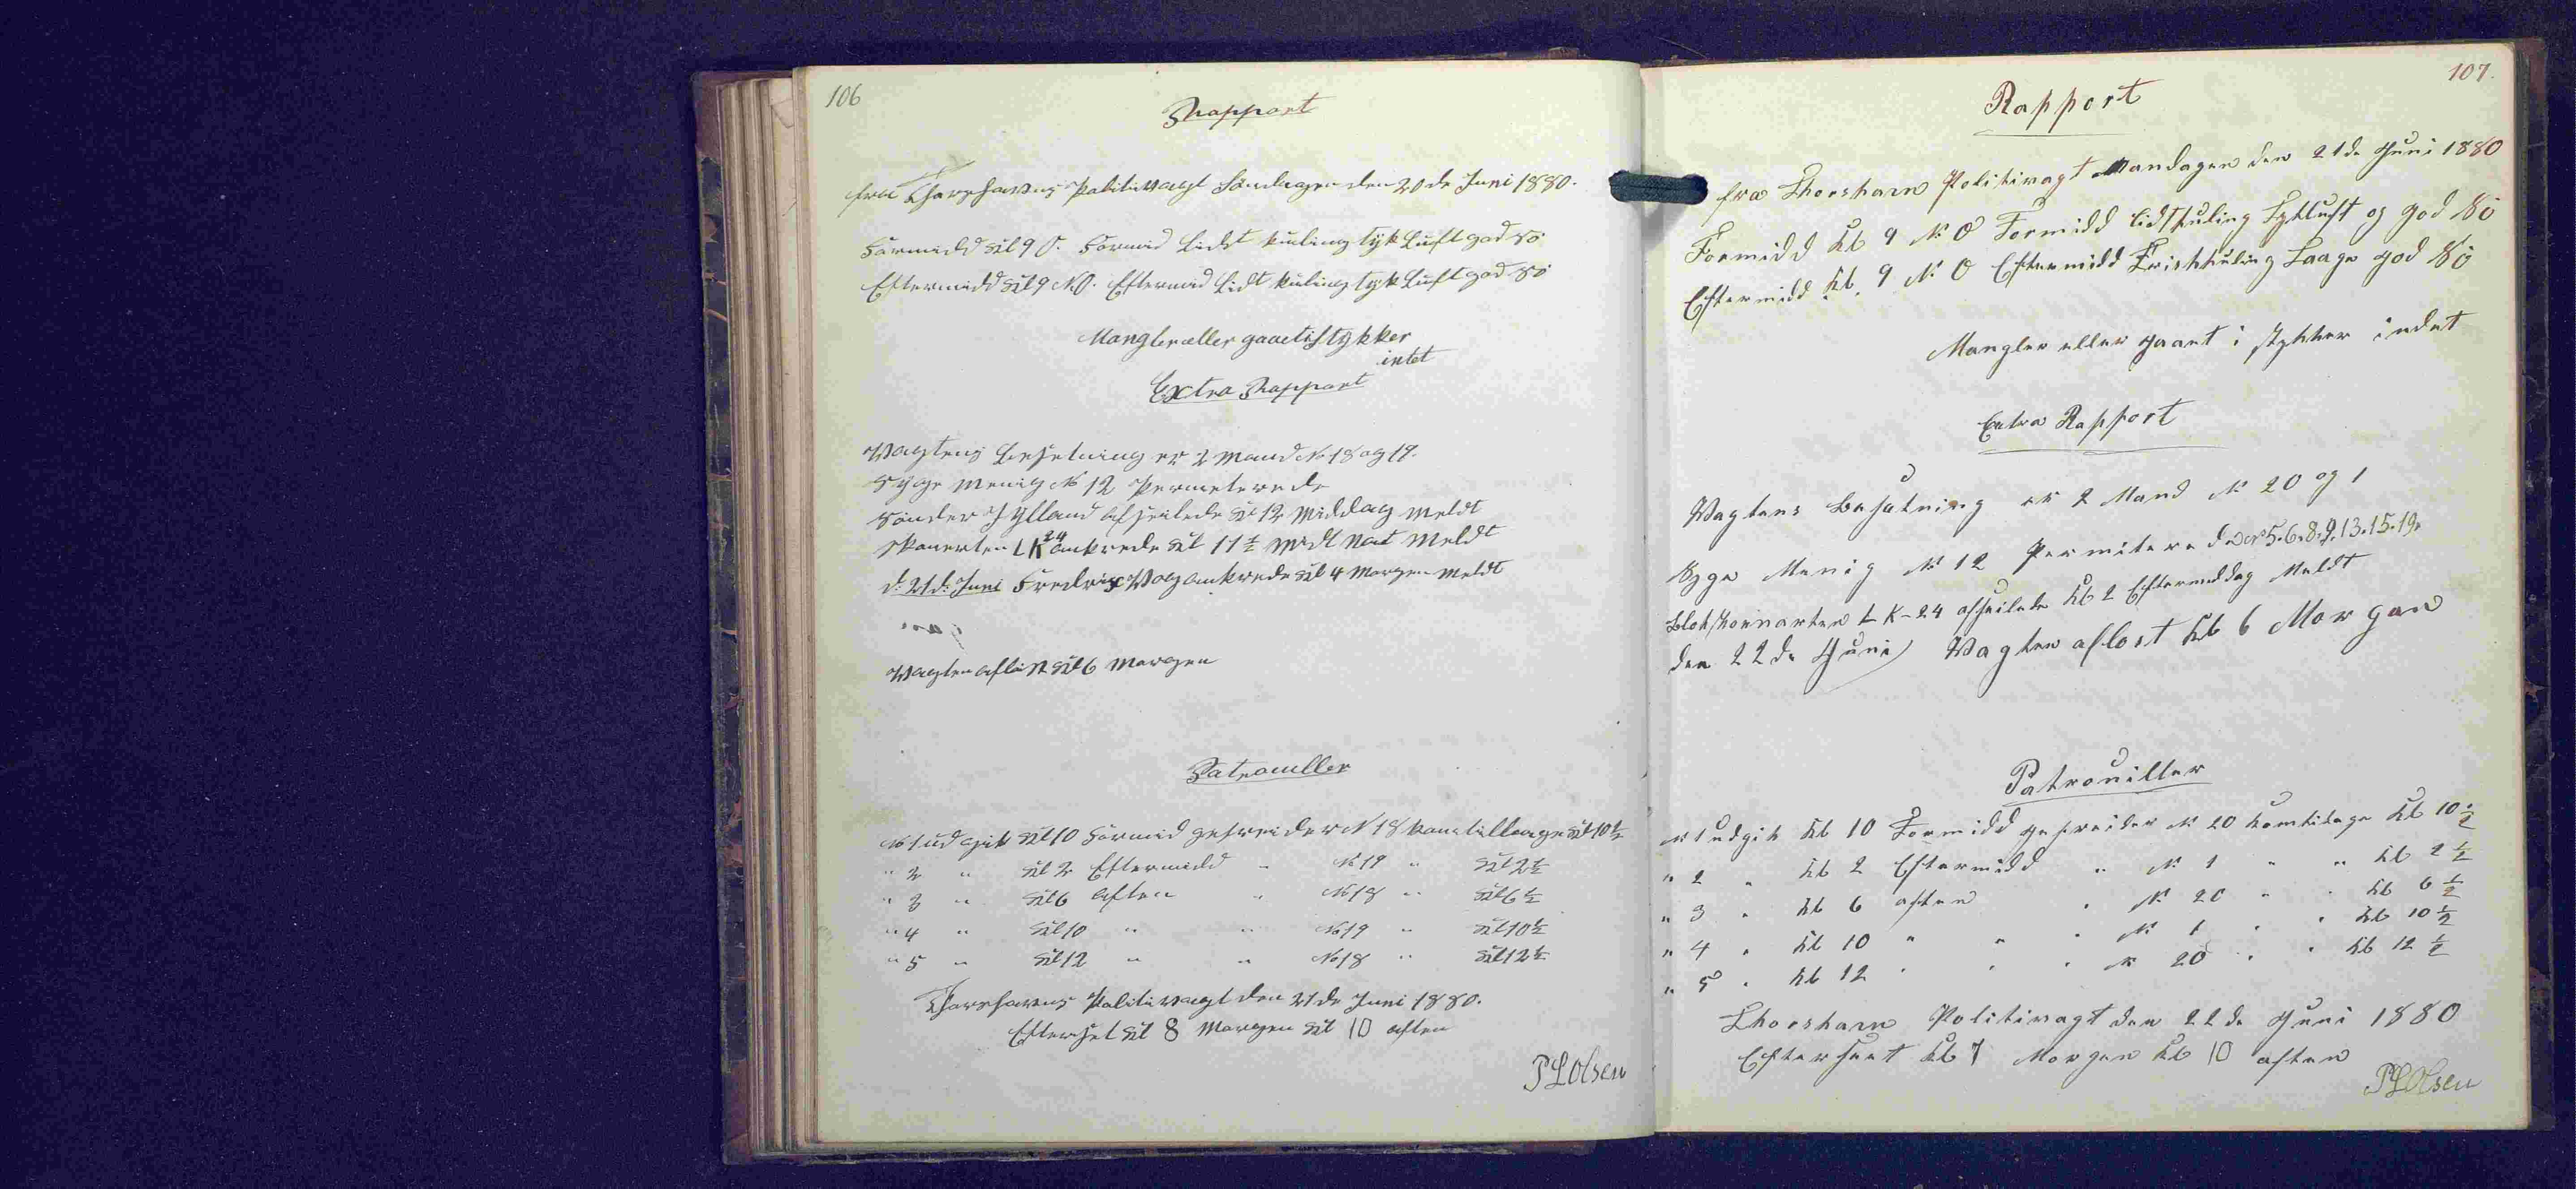 106
Rapport
fra Thorshavns Politivagt Søndagen den 20de Juni 1880.
Formidd Kl 9 O. Formid Lidt kuling tyk Luft god Sö
Eftermidd Kl 9 NO. Eftermid Lidt kuling tyk Luft god Sö
Mangler eller gaaet i stykker
intet
Extra Rapport
Vagtens Besetning er 2 Mand No 18 og 19.
Syge Menig No 12 Permeterede
Sönder Jylland afseilede Kl 12 Middag Meldt
Skonerten LK 24 ankrede Kl 11½ Midt Nat Meldt
d: 21d: Juni Fredrix Vog ankrede Kl 4 Morgen Meldt
Vagten aflöst Kl 6 Morgen
Patrouller
No 1 ud gik Kl 10 Formid gefreider N 18 kom tillbage Kl 10½
" 2 " Kl 2 Eftermidd " No 19 " Kl 2½
" 3 " Kl 6 Aften " No 18 " Kl 6½
" 4 " Kl 10 " " No 19 " Kl 10½
" 5 " Kl 12 " " No 18 " Kl 12½
Thorshavns Politivagt den 21de Juni 1880.
Efterset Kl 8 Morgen Kl 10 aften
P L Olsen
107.
Rapport
fra Thorshavn Politivagt Mandagen den 21de Juni 1880
Formidd Kl 9 N O Formidd Lidt kuling Tykluft og god Sö
Eftermidd Kl. 9 N O Eftermidd Frisk kuling Taage god Sö
Mangler eller gaaet i stykker indet
Extra Rapport
Vagtens Besatning er 2 Mand N 20 og 1
Syge Menig N 12 Permiterede er 5. 6. 8. 9. 13. 15. 19.
Blokskonnarten L K-24 afseilede Kl 2 Eftermeddag Meldt
den 22de Juni Vagten aflost Kl 6 Morgen
Patrouiller
N 1 udgik Kl 10 Formidd gefreider N 20 komtibage Kl 10½
" 2 " Kl 2 Eftermidd " N 1 " " Kl 2½
" 3 " Kl 6 aften " N 20 " " Kl 6½
" 4 " Kl 10 " " " N 1 " " Kl 10½
" 5 " Kl 12 " " " N 20 " " Kl 12½
Thorshavn Politivagt den 22de Juni 1880
Efterseet Kl 7 Morgen Kl 10 aften
P L Olsen